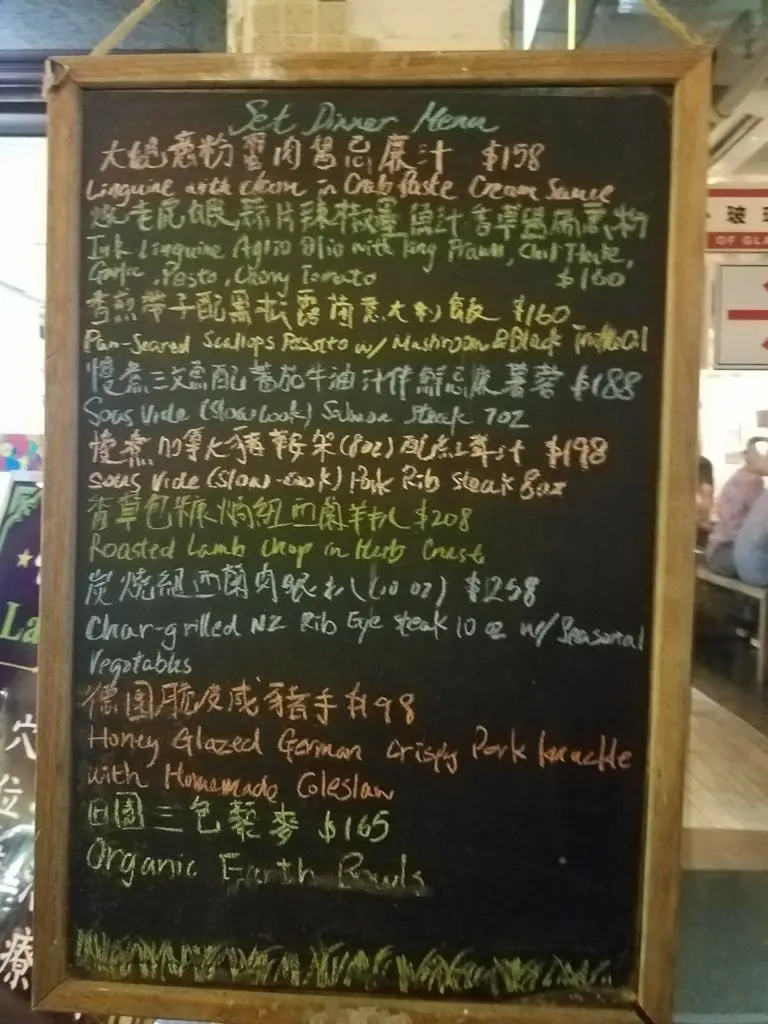 Set Dinner Menu
大蜆意粉蟹肉醬忌廉汁 $158
Linguine with Clam in Crab Paste Cream Sauce
燒老虎蝦,蒜片辣椒墨魚汁香草醬扁意粉
Ink Linguine Aglio Olio with King Prawn,
Garlic, Pesto, Cherry Tomato $160
香煎帶子配黑松露菌意大利飯 $160
Pan-Seared Scallops Rosotto w/ Mushroom & Black Truffle Oil
慢煮三文魚配蕃茄牛油汁伴鮮忌廉薯蓉 $188
Sous Vide (Slow Cook) Salmon Steak 7oz
慢煮加拿大豬鞍架(8oz)配汁 $198
Sous Vide (Slow-cook) Pork Rib Steak 8oz
香草包糠焗紐西蘭羊扒 $208
Roasted Lamb Chop in Herb Crust
炭燒紐西蘭肉眼扒(10 oz) $258
Char-grilled NZ Rib Eye Steak 10 oz w/ Seasonal
Vegetables
德國脆皮咸豬手 $198
Honey Glazed German Crispy Pork Knuckle
with Homemade Coleslaw
田園三色藜麥 $165
Organic Earth Bowls
玻
OF GLA
La
穴
位
療